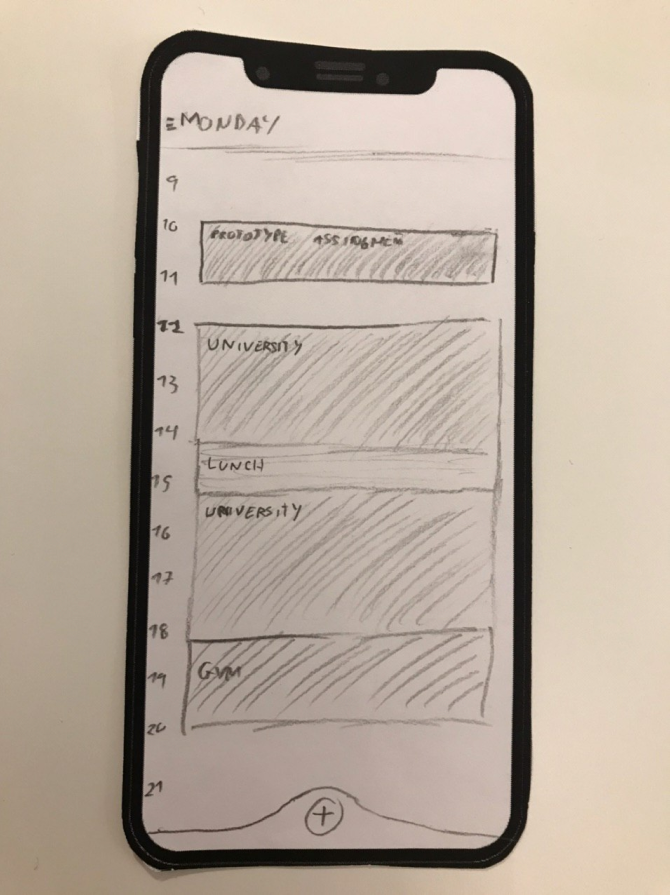 MONDAY
9
10
PROTOTYPE ASSIGNMEN
11
12
UNIVERSITY
13
14
LUNCH
15
UNIVERSITY
16
17
18
GYM
19
20
21
+